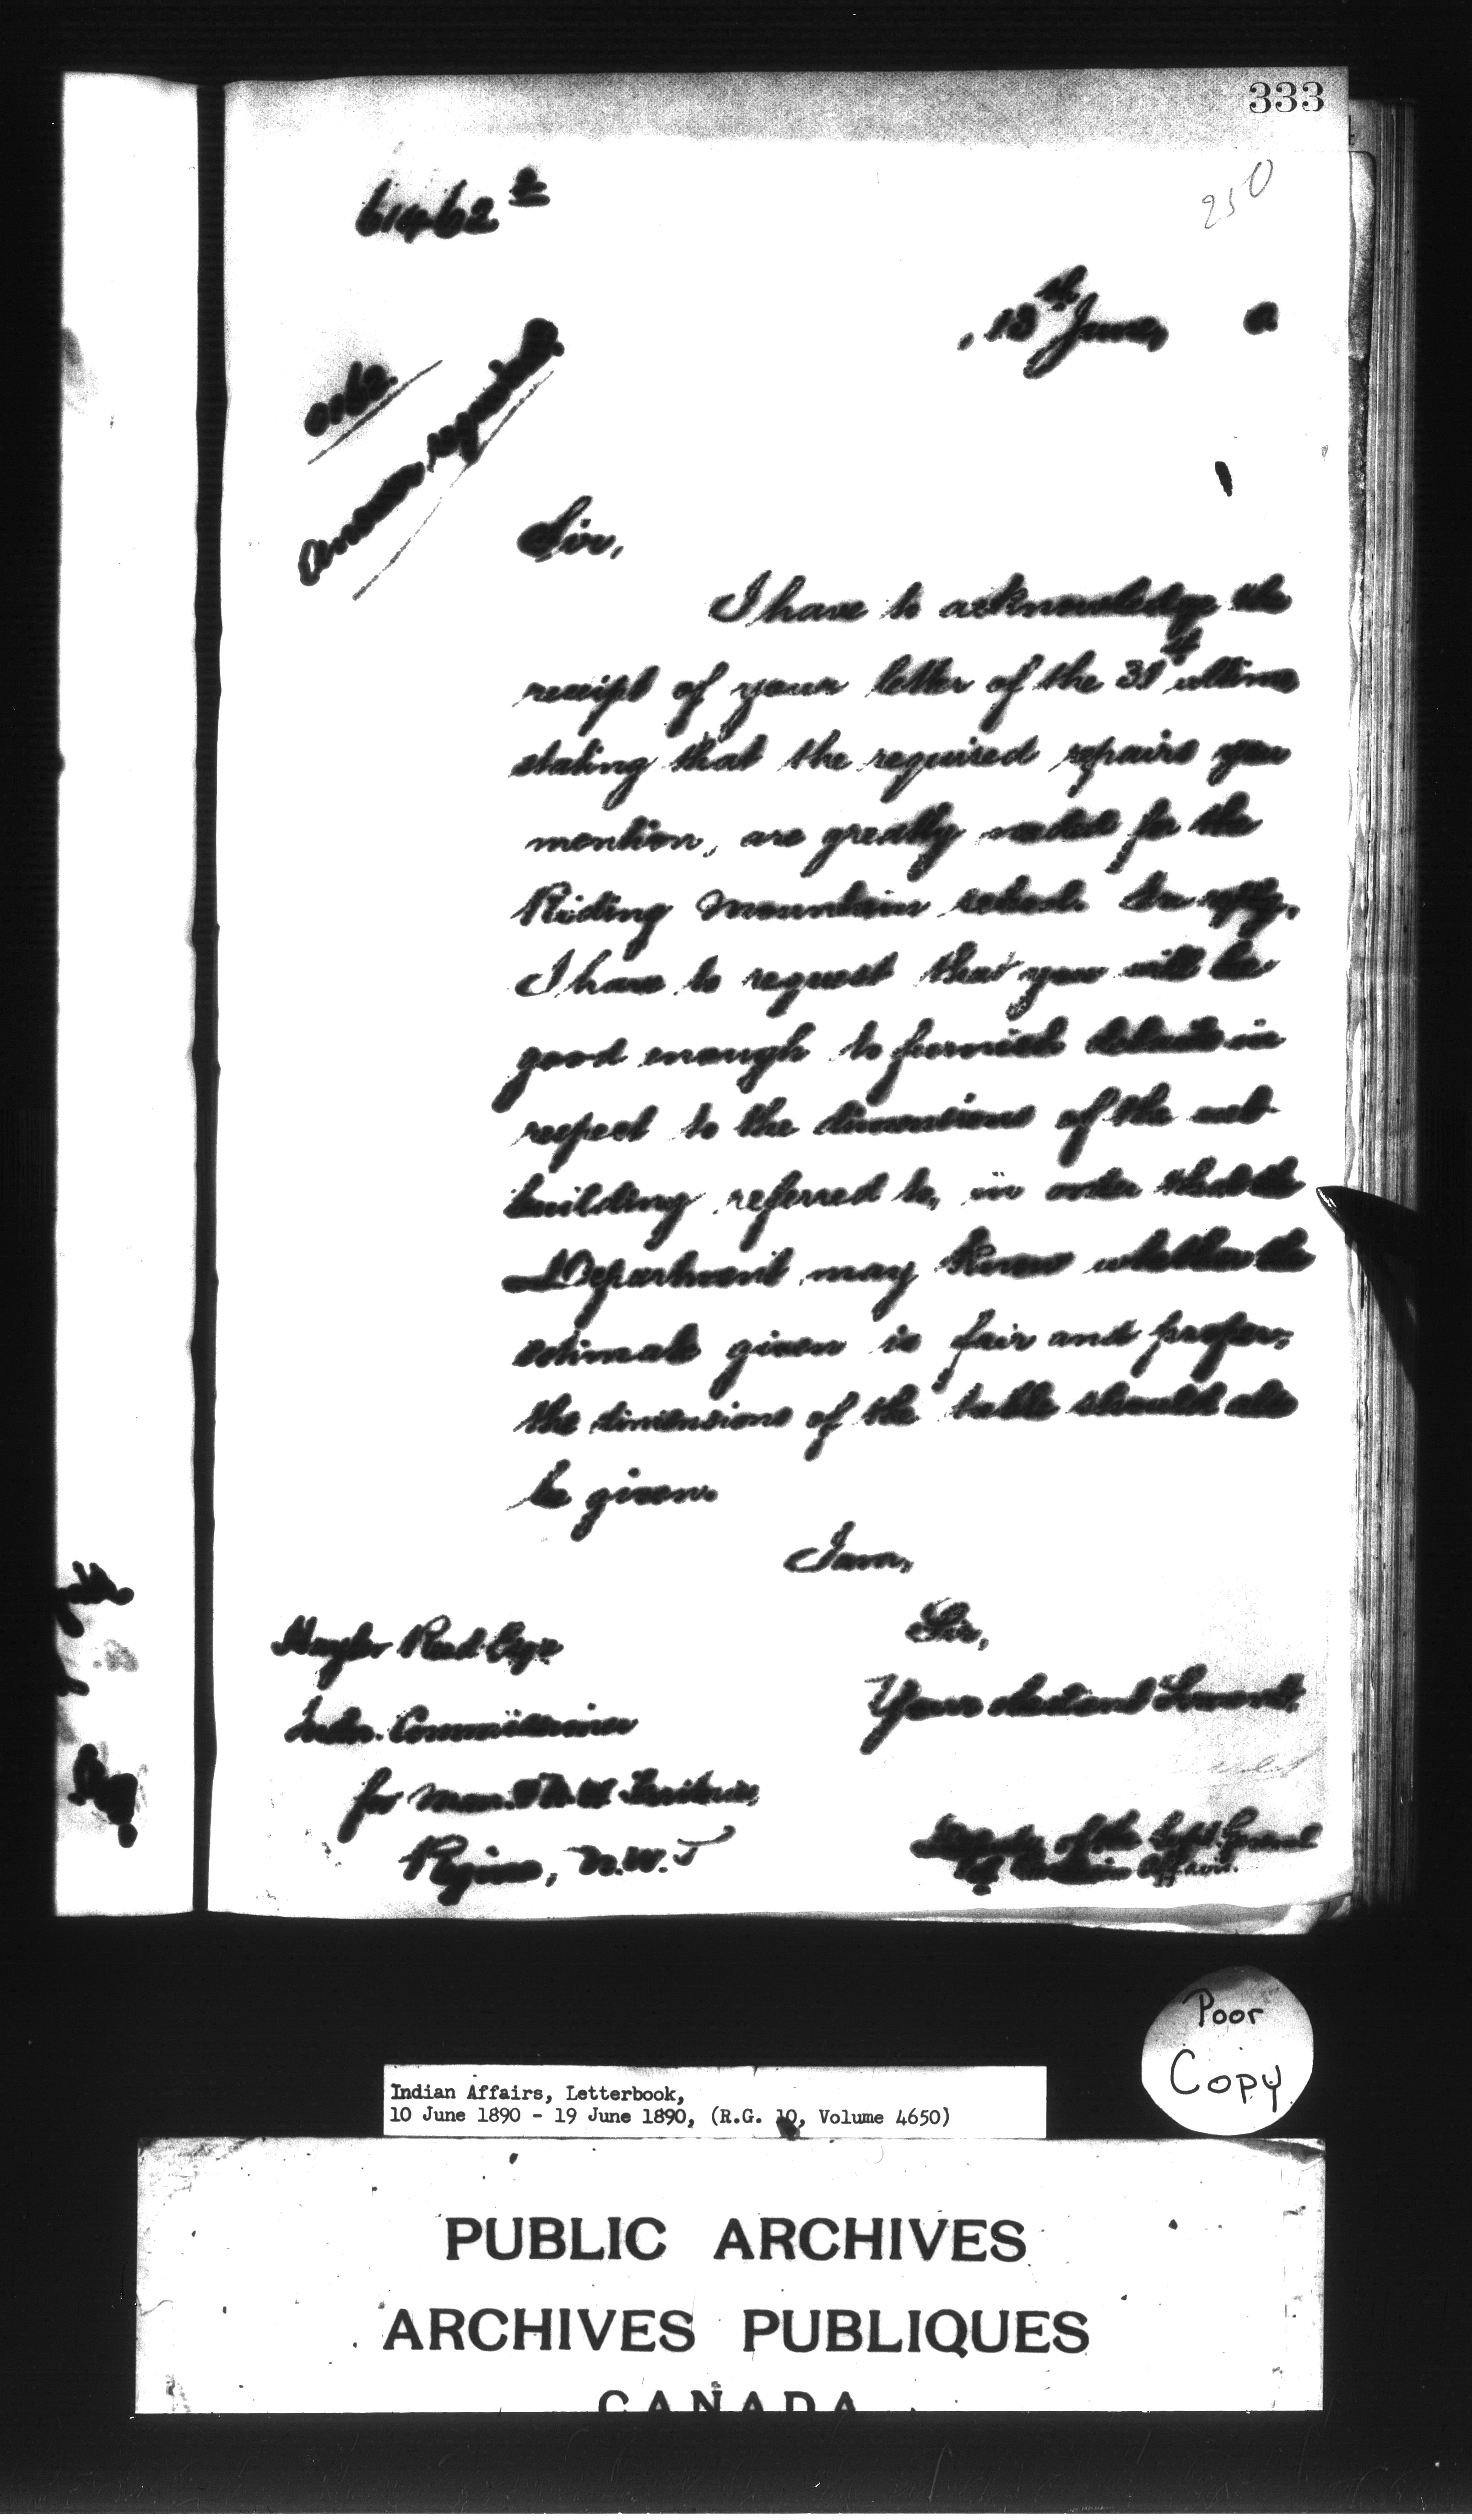 333
250
61462 2
13th June, 0
Answer required.
Sir,
I have to acknowledge the
receipt of your letter of the 31st ultimo
stating that the required repairs you
mention, are greatly needed for the
Riding Mountain school. In reply,
I have to request that you will be
good enough to furnish details in
respect to the dimensions of the out-
building referred to, in order that the
Department may know whether the
estimate given is fair and proper;
the dimensions of the table should also
be given.
I am,
Sir,
Your obedient Servant,
Hayter Reed Esqr.
Indn. Commissioner
for Man. & N.W. Territories,
Regina, N.W.T
Deputy of the Supt. General
of Indian Affairs.
Poor
Copy
Indian Affairs, Letterbook,
10 June 1890 - 19 June 1890, (R.G. 10, Volume 4650)
PUBLIC ARCHIVES
ARCHIVES PUBLIQUES
CANADA